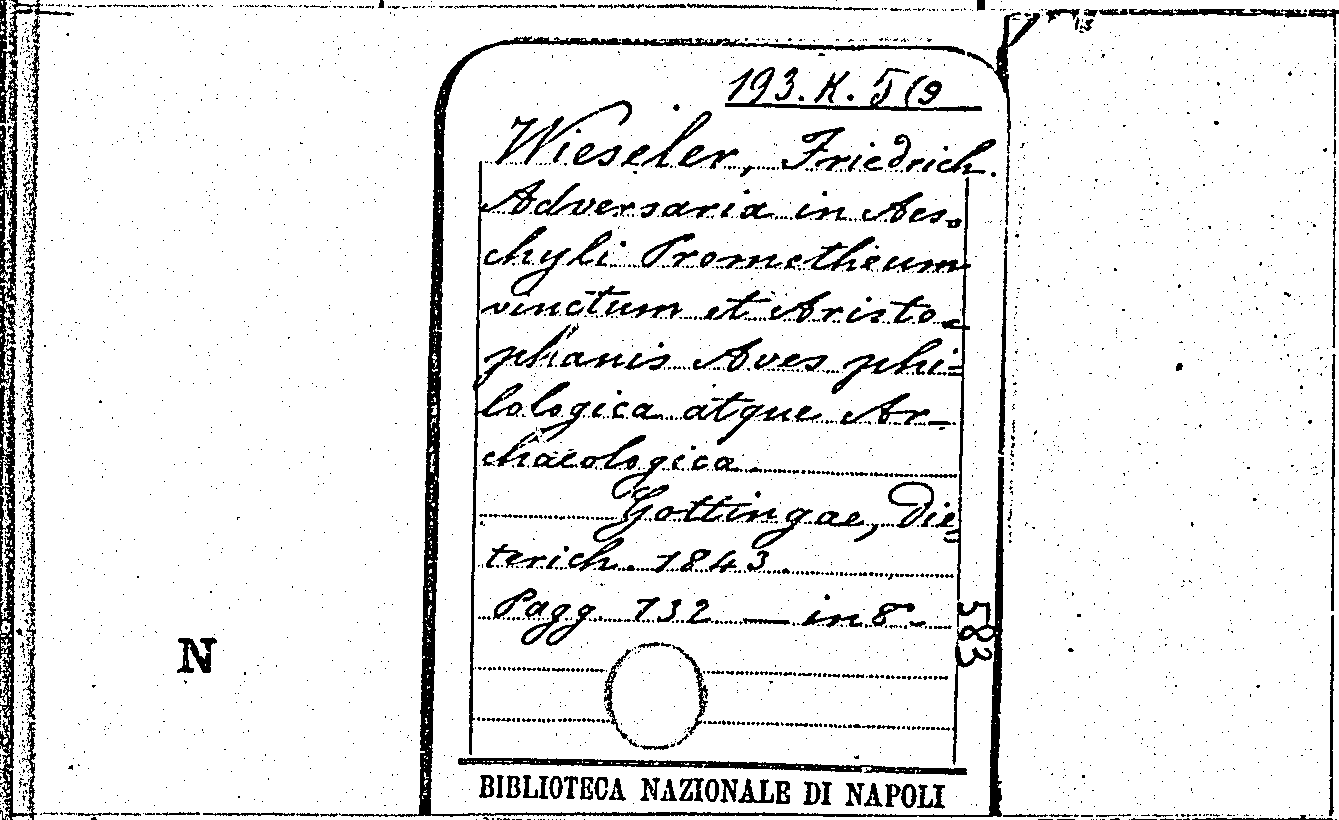 193. K. 5(9
Wieseler, Friedrich.
Adversaria in Aes-
chyli Prometheum
vinctum et Aristo-
phanis Aves phi=
lologica atque Ar-
chaeologica.
Gottingae, Die=
terich. 1843.
Pagg. 132 — in 8°
583
N
BIBLIOTECA NAZIONALE DI NAPOLI